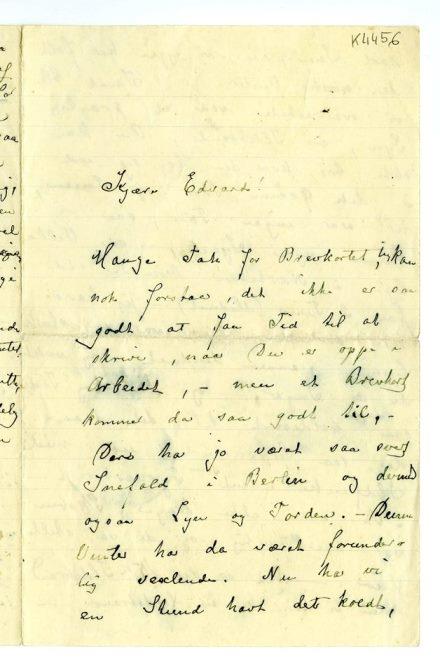 K4456
Kjære Edvard!
Mange Tak for Brevkortet, jeg kan
nok forstaa, det ikke er saa
godt at faa Tid til at
skrive, naar Du er oppe i
Arbeidet, – men et Brevkort
kommer da saa godt til, –
Der har jo været saa svært
Snefald i Berlin og dermed
ogsaa Lyn og Torden. – Denne
Vinter har da været forunder=
lig vexlende. Nu har vi
en Stund havt det koldt,